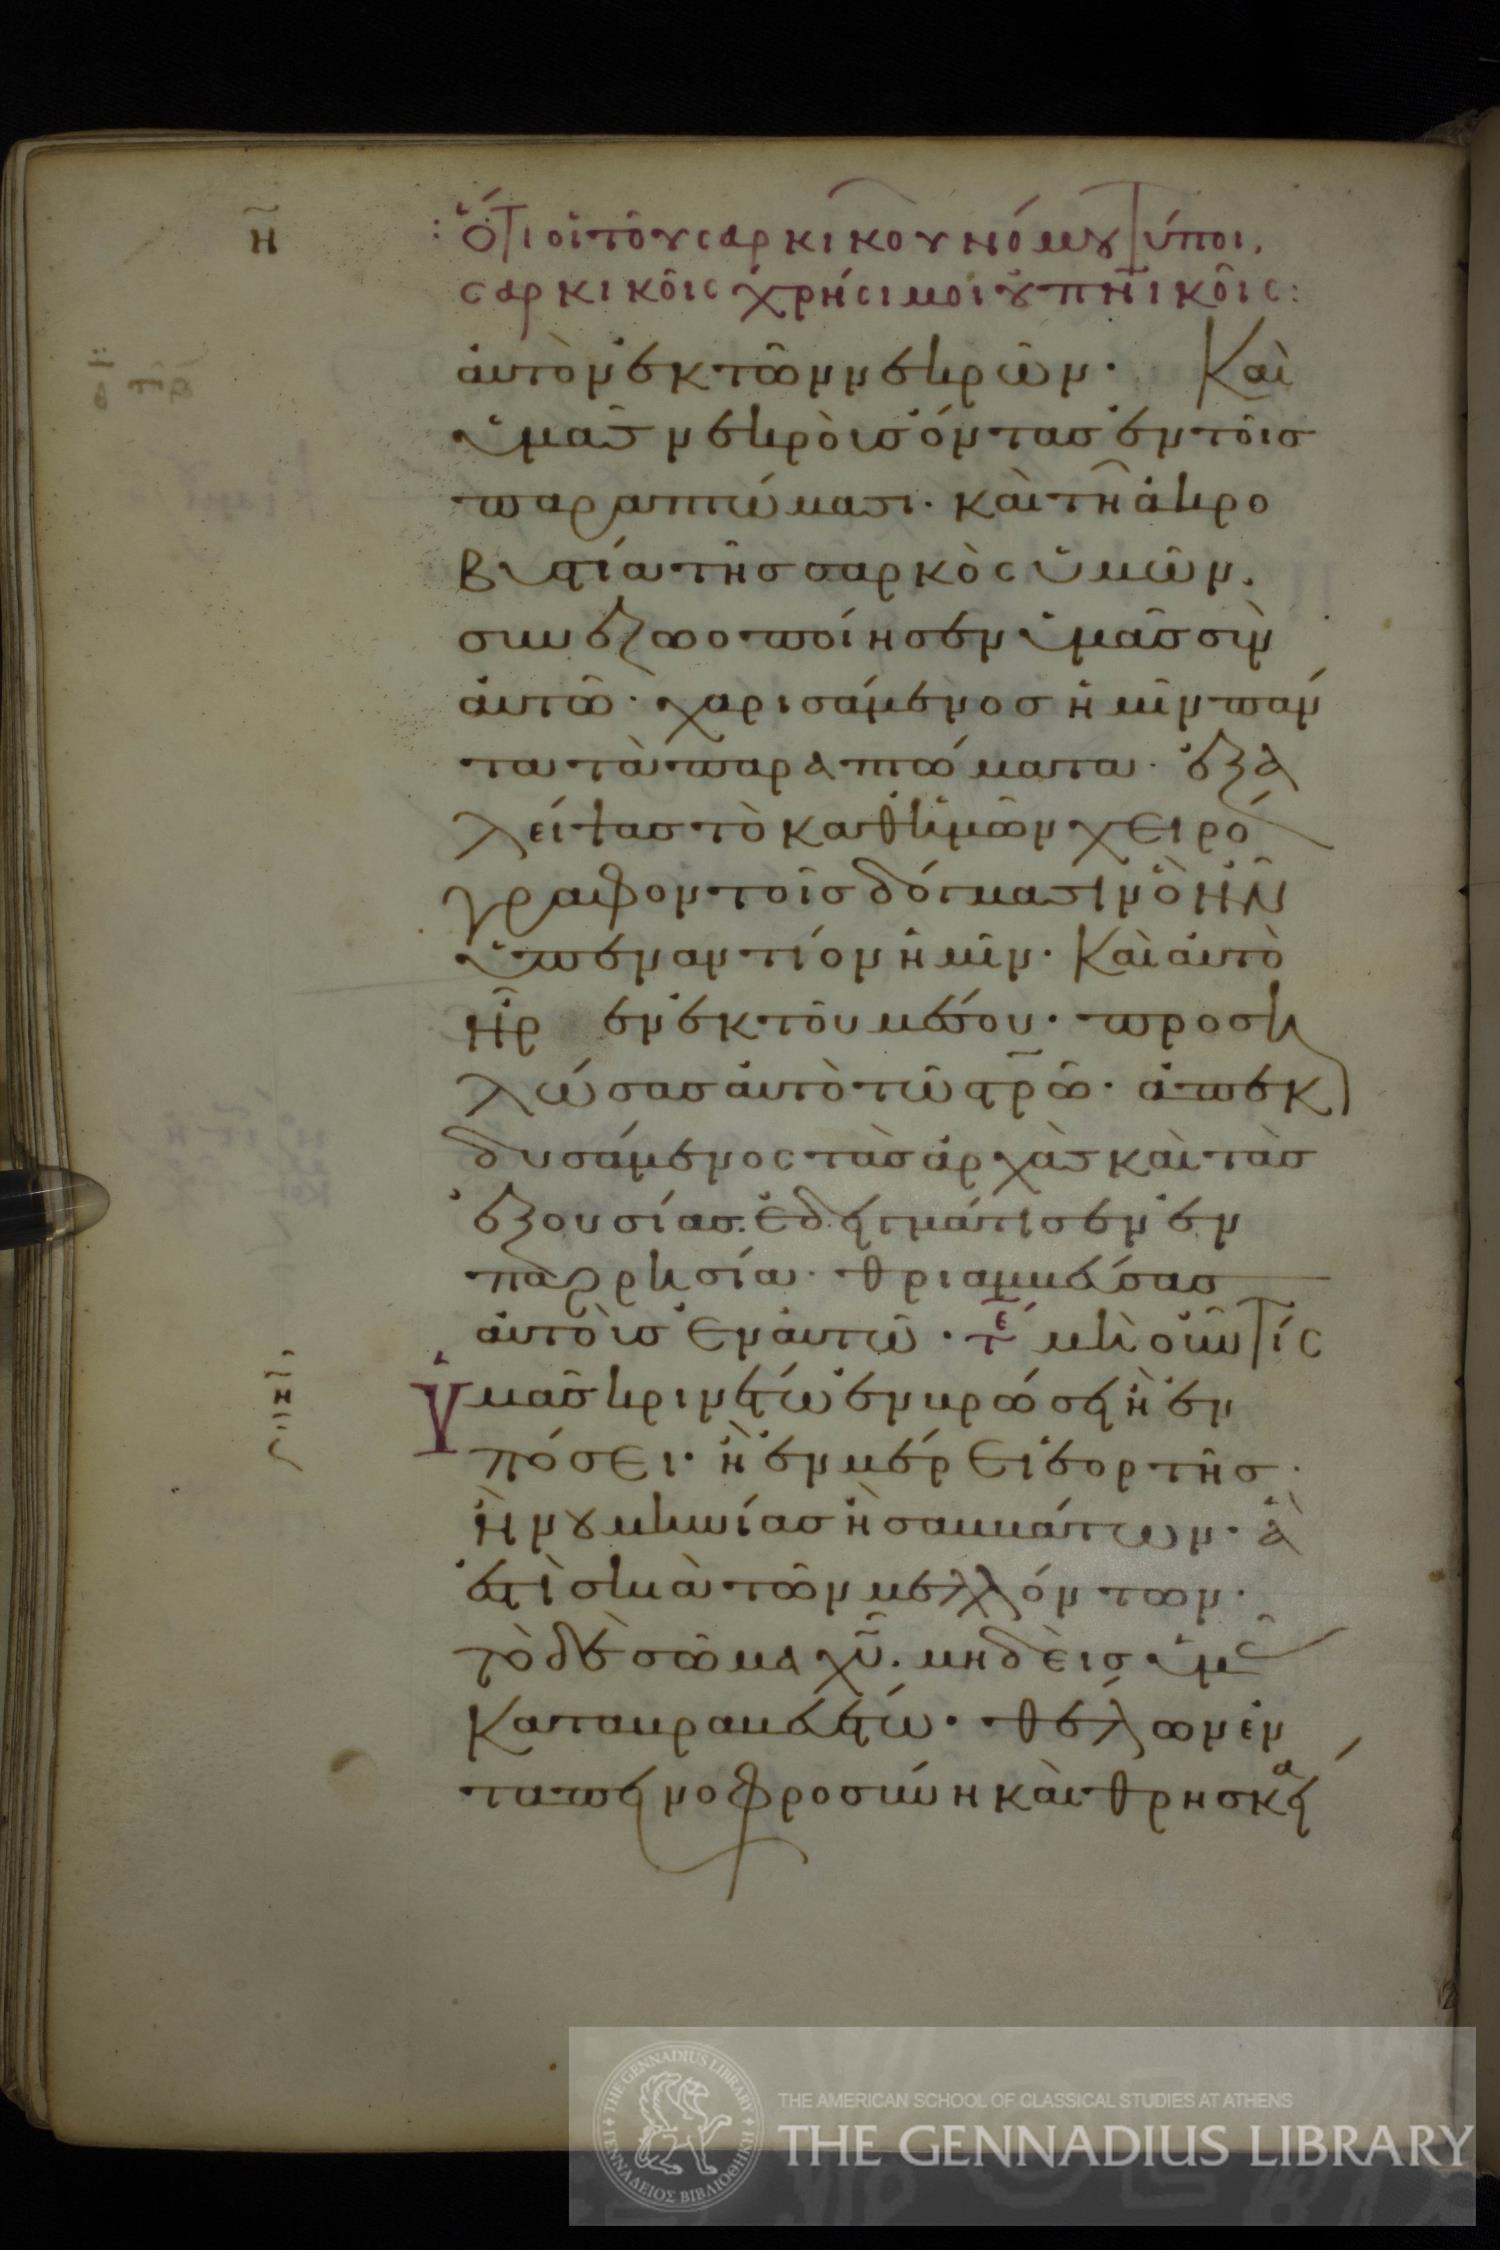 η
Ὅτι οἱ τοῦ σαρκικοῦ νόμου τύποι,
σαρκικοῖς χρήσιμοι οὐ πνικοῖς:
αὐτὸν ἐκ τῶν νεκρῶν. Καὶ
ὑμᾶς νεκροὺς ὄντας ἐν τοῖς
παραπτώμασι. καὶ τῆ ἀκρο
βυστία τῆς σαρκὸς ὑμῶν.
συνεζωοποίησεν ὑμᾶς σὺν
αὐτῶ. χαρισάμενος ἡμῖν πάν
τα τὰ παραπτώματα. ἐξα
λείψας τὸ καθ ἡμῶν χειρό
γραφον τοῖς δόγμασιν ὃ ἦν
ὑπεναντίον ἡμῖν. Καὶ αὐτὸ
ἦρ εν ἐκ τοῦ μέσου. προση
λώσας αὐτὸ τῶ στρῶ. ἀπεκ
δυσάμενος τὰς ἀρχὰς καὶ τὰς
ἐξουσίας. ἐδειγμάτισεν ἐν
παρρησία. θριαμβεύσας
αὐτοὺς ἐν αὐτῶ. τε μὴ οὖν τίς
ὑμᾶς κρινέτω ἐν βρώσει ἢ ἐν
πόσει. ἢ ἐν μέρει ἑορτῆς.
ἢ νουμηνίας ἢ σαββάτων. ἅ
ἐστι σκιὰ τῶν μελλόντων.
τὸ δὲ σῶμα χῦ. μηδεὶς ὑμᾶς
καταβραβευέτω. θέλων ἐν
ταπεινοφροσύνη καὶ θρησκεία
THE GENNADIUS LIBRARY
ΓΕΝΝΑΔΕΙΟΣ ΒΙΒΛΙΟΘΗΚΗ
THE AMERICAN SCHOOL OF CLASSICAL STUDIES AT ATHENS
THE GENNADIUS LIBRARY